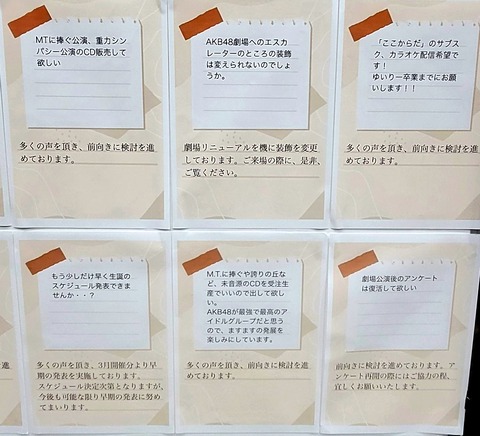 MTに捧ぐ公演、重力シン
パシー公演のCD販売して
欲しい
多くの声を頂き、前向きに検討を進
めております。
AKB48劇場へのエスカ
レーターのところの装飾
は変えられないのでしょ
うか。
劇場リニューアルを機に装飾を変更
しております。ご来場の際に、是非、
ご覧ください。
「ここからだ」のサブス
ク、カラオケ配信希望で
す！
ゆいりー卒業までにお願
いします！！
多くの声を頂き、前向きに検討を進
めております。
進
もう少しだけ早く生誕の
スケジュール発表できま
せんか・・？
多くの声を頂き、3月開催分より早
期の発表を実施しております。
スケジュール決定次第となりますが、
今後も可能な限り早期の発表に努め
てまいります。
M.T.に捧ぐや誇りの丘な
ど、未音源のCDを受注生
産でいいので出して欲し
い。
AKB48が最強で最高のア
イドルグループだと思う
ので、ますますの発展を
楽しみにしています。
多くの声を頂き、前向きに検討を進
めております。
劇場公演後のアンケート
は復活して欲しい
前向きに検討を進めております。ア
ンケート再開の際にはご協力の程、
宜しくお願いいたします。